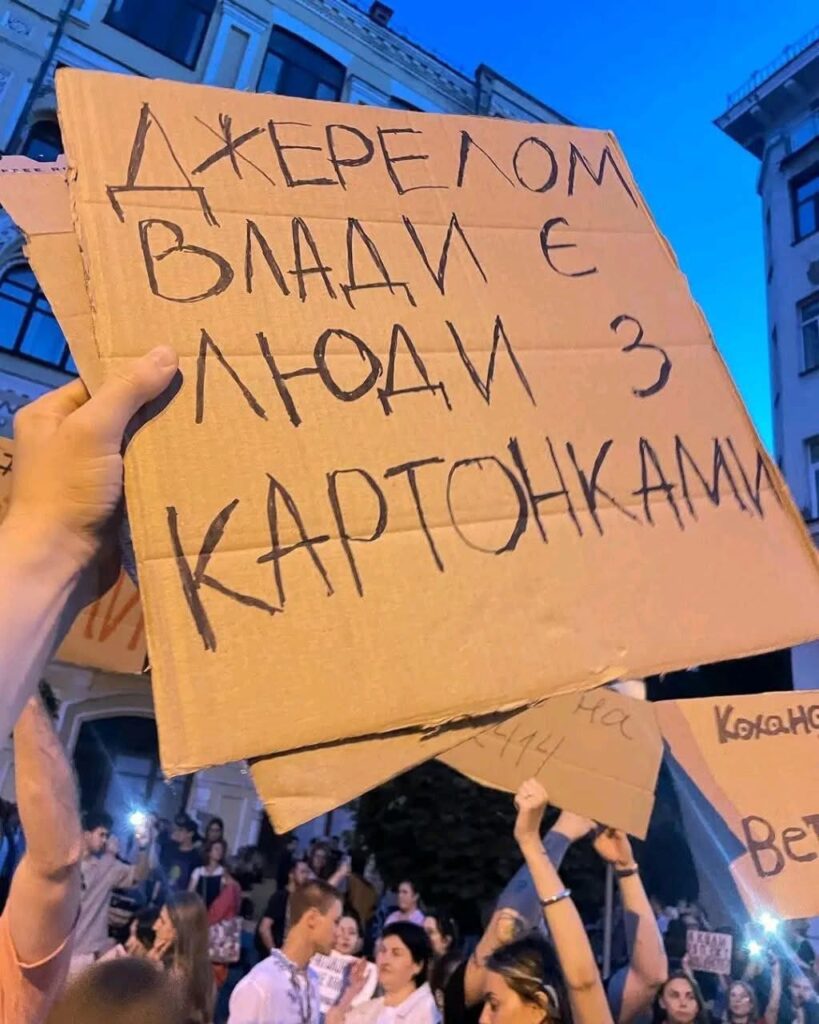 ДЖЕРЕЛОМ
ВЛАДИ Є
ЛЮДИ З
КАРТОНКАМИ
на
2414
Кохано
Вет